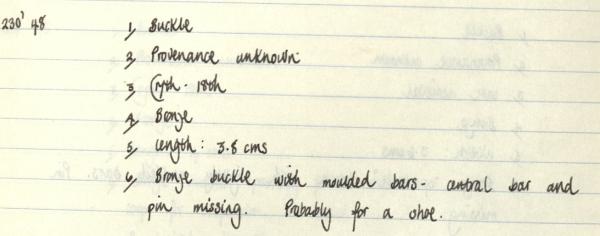 230' 48
1, Buckle
2, Provenance unknown.
3, C17th - 18th
4, Bronze
5, Length: 3.8 cms
6, Bronze buckle with moulded bars - central bar and
pin missing. Probably for a shoe.